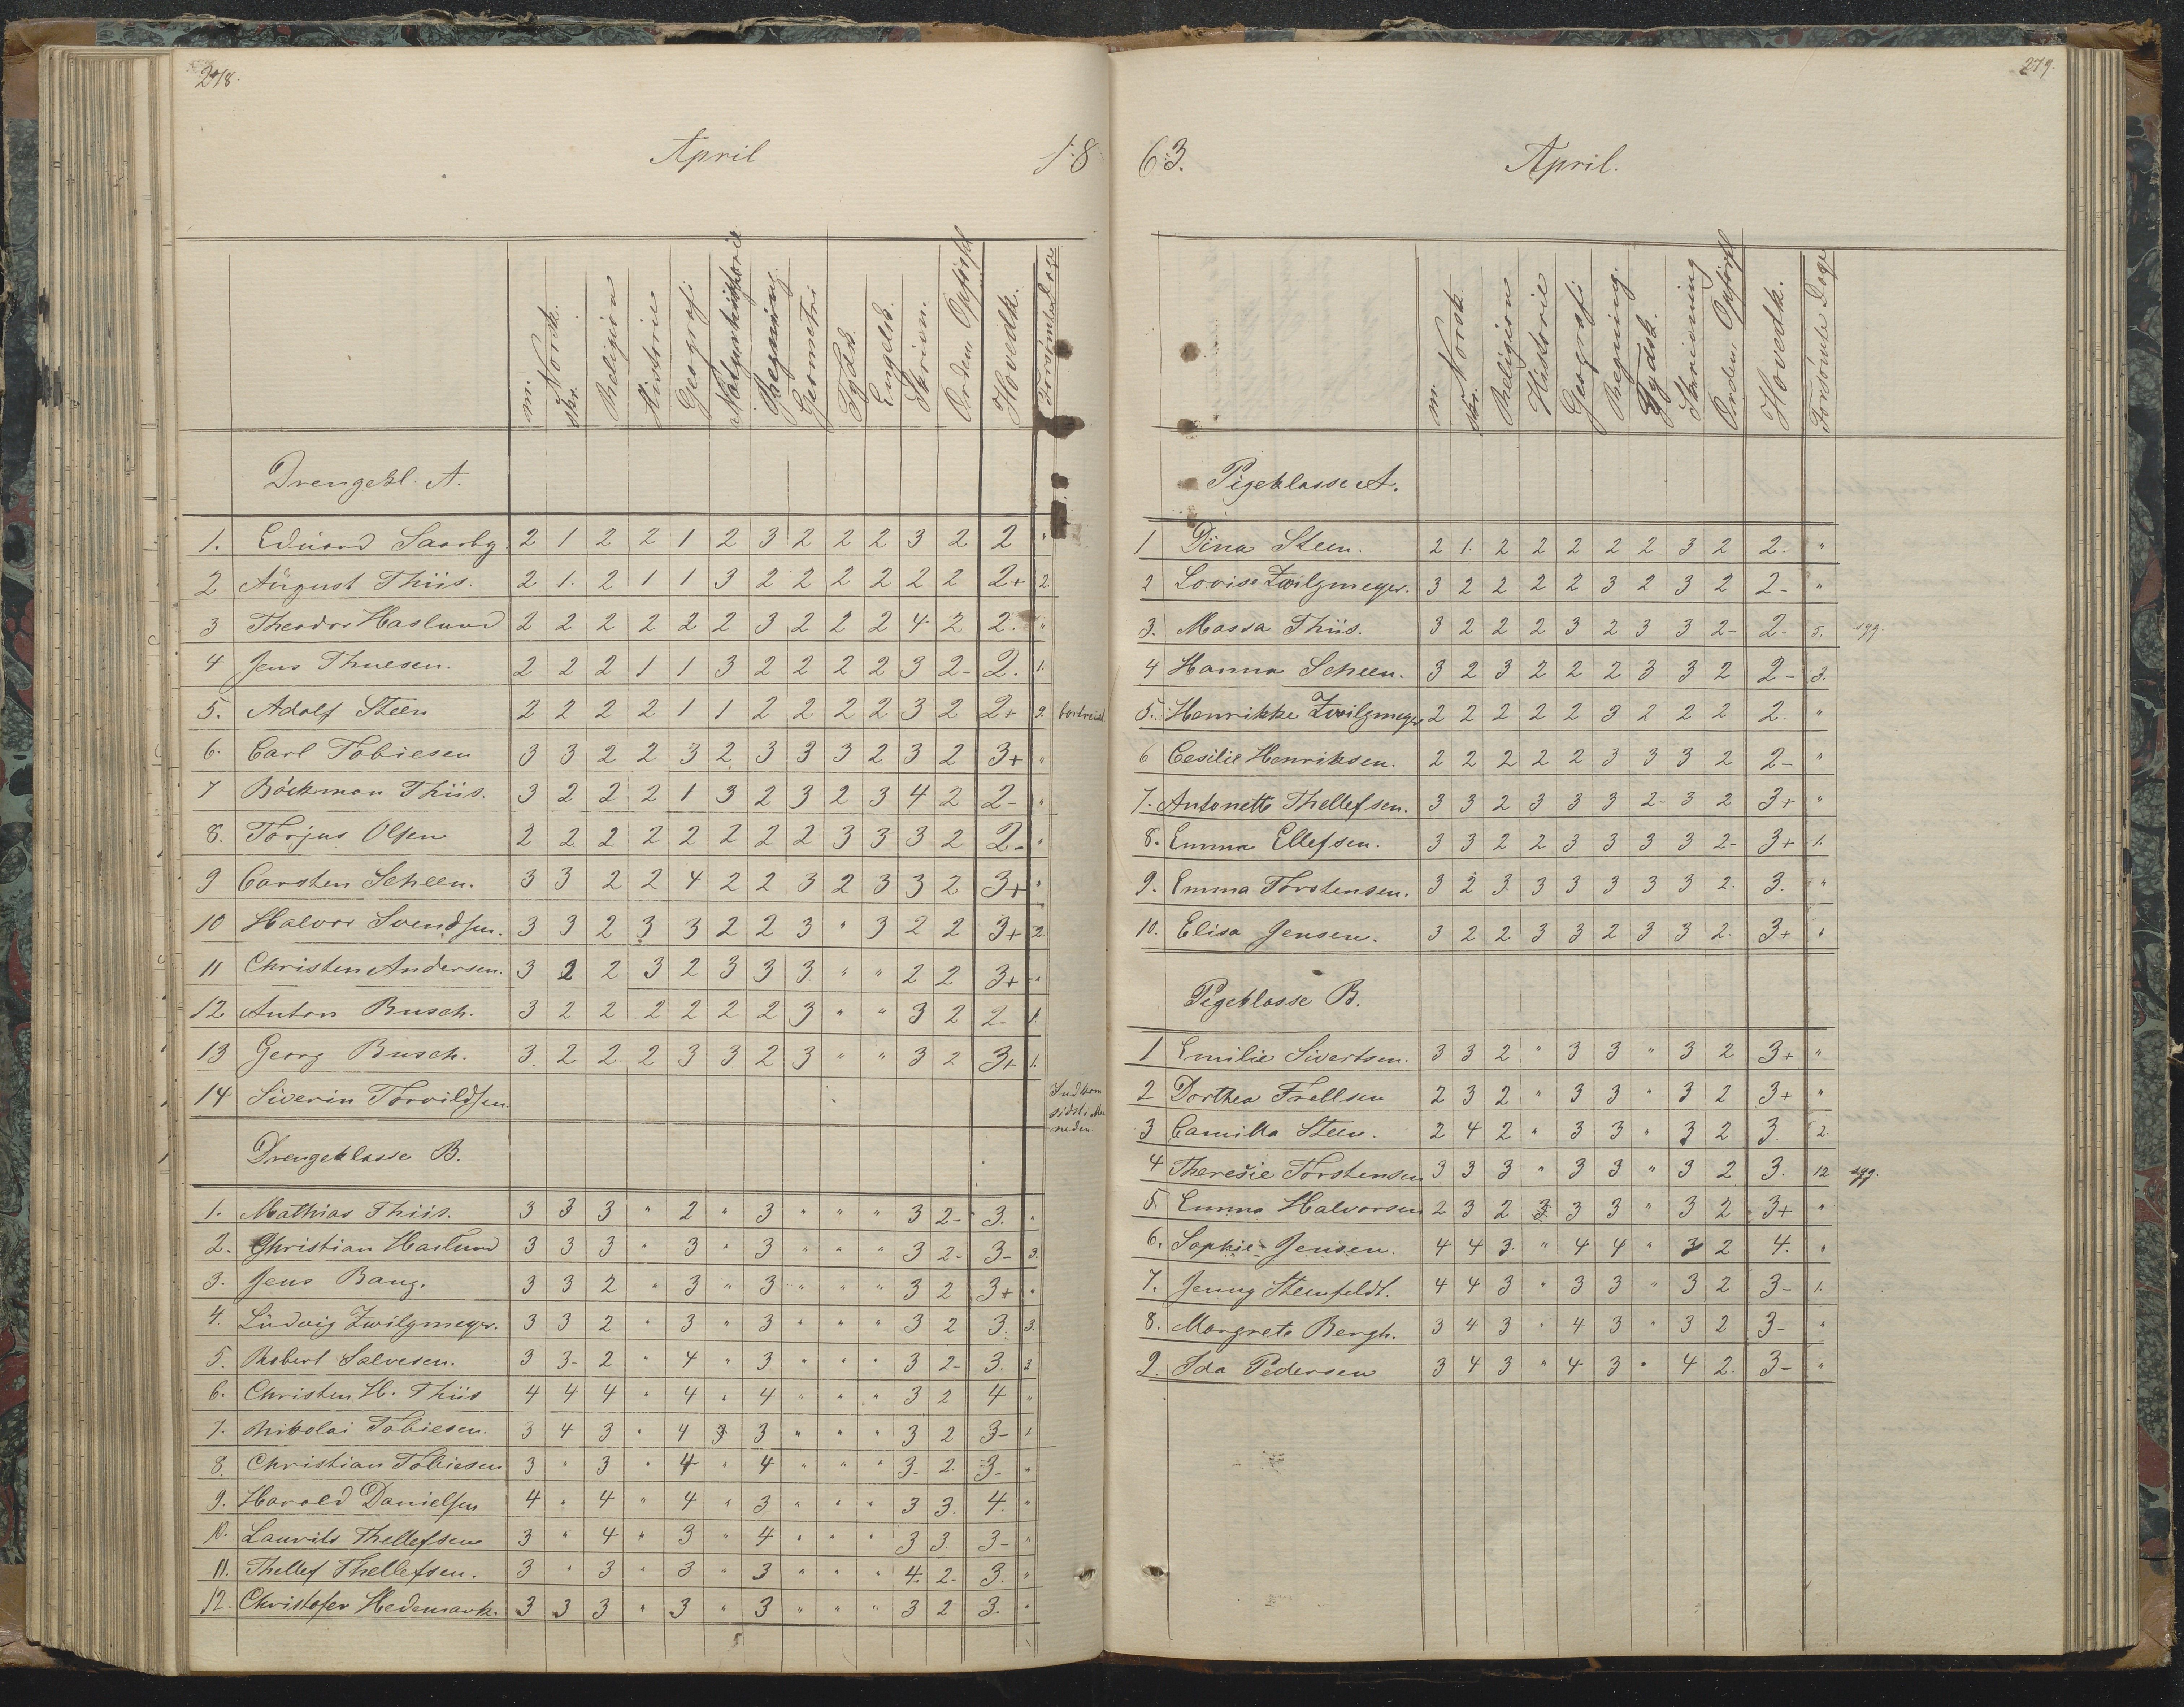 278.
April
18
m. Norsk. skr. Religion Historie Geografi Naturhistorie Regning. Geometri Tydsk. Engelsk. Skrivn. Orden, Opførsel Hovedk. Forsømte Dage
Drengekl. A.
1. Eduard Saarby 2 1 2 2 1 2 3 2 2 2 3 2 2 "
2 August Thiis. 2 1. 2 1 1 3 2 2 2 2 2 2 2+ 2.
3 Theodor Haslund 2 2 2 2 2 2 3 2 2 2 4 2 2. "
4 Jens Thuesen. 2 2 2 1 1 3 2 2 2 2 3 2- 2. 1.
5. Adolf Steen 2 2 2 2 1 1 2 2 2 2 3 2 2+ 9. bortreist
6. Carl Tobiesen 3 3 2 2 3 2 3 3 3 2 3 2 3+ "
7 Böckman Thiis. 3 2 2 2 1 3 2 3 2 3 4 2 2- "
8. Torjus Olsen 2 2 2 2 2 2 2 2 3 3 3 2 2- "
9 Carsten Scheen. 3 3 2 2 4 2 2 3 2 3 3 2 3+ "
10 Halvor Svendsen. 3 3 2 3 3 2 2 3 " 3 2 2 3+ 2.
11 Christen Andersen. 3 2 2 3 2 3 3 3 " " 2 2 3+ "
12 Anton Busch. 3 2 2 2 2 2 2 3 " " 3 2 2- 1.
13 Georg Busch. 3. 2 2 2 3 3 2 3 " " 3 2 3+ 1.
14 Siverin Torvildsen. Indkom sidst i Maaneden
Drengeklasse B.
1. Mathias Thiis. 3 3 3 " 2 " 3 " " " 3 2- 3. "
2. Christian Haslund 3 3 3 " 3 " 3 " " " 3 2- 3- 3.
3. Jens Bang. 3 3 2 " 3 " 3 " " " 3 2 3+ "
4. Ludvig Zwilgmeyer. 3 3 2 " 3 " 3 " " " 3 2 3. 3.
5. Robert Salvesen. 3 3- 2 " 4 " 3 " " " 3 2- 3. 2
6. Christen H. Thiis 4 4 4 " 4 " 4 " " " 3 2 4 "
7. Nikolai Tobiesen. 3 4 3 " 4 3 3 " " " 3 2 3- 1
8. Christian Tobiesen 3 " 3 " 4 " 4 " " " 3- 2. 3- "
9. Harald Danielsen 4 " 4 " 4 " 3 " " " 3 3. 4. "
10. Laurits Thellefsen 3 " 4 " 3 " 4 " " " 3 3. 3- "
11. Thellef Thellefsen. 3 " 3 " 3 " 3 " " " 4. 2- 3. "
12. Christofer Hedemark. 3 3 3 " 3 " 3 " " " 3 2 3. "
279.
63.
April.
m. Norsk skr. Religion Historie Geografi Regning. Tydsk. Skrivning Orden, Opførsel Hovedk. Forsømte Dage
Pigeklasse A.
1 Dina Steen. 2 1. 2 2 2 2 2 3 2 2. "
2 Lovise Zwilgmeyer. 3 2 2 2 2 3 2 3 2 2- "
3. Massa Thiis. 3 2 2 2 3 2 3 3 2- 2- 5. syg.
4 Hanna Scheen. 3 2 3 2 2 2 3 3 2 2- 3.
5. Henrikke Zwilgmeyer 2 2 2 2 2 3 2 2 2 2. "
6 Cesilie Henriksen. 2 2 2 2 2 3 3 3 2 2- "
7. Antonette Thellefsen. 3 3 2 3 3 3 2- 3 2 3+ "
8. Emma Ellefsen. 3 3 2 2 3 3 3 3 2- 3+ 1.
9. Emma Torstensen. 3 2 3 3 3 3 3 3 2. 3. "
10. Elisa Jensen. 3 2 2 3 3 2 3 3 2. 3+ "
Pigeklasse B.
1 Emilie Sivertsen. 3 3 2 " 3 3 " 3 2 3+ "
2 Dorthea Frellsen 2 3 2 " 3 3 " 3 2 3+ "
3 Camilla Steen. 2 4 2 " 3 3 " 3 2 3. 2.
4 Theresie Torstensen 3 3 3 " 3 3 " 3 2 3. 12 syg.
5. Emma Halvorsen 2 3 2 3 3 3 " 3 2 3+ "
6. Sophie Jensen. 4 4 3. " 4 4 " 3 2 4. "
7. Jenny Steenfeldt. 4 4 3 " 3 3 " 3 2 3- 1.
8. Margrete Bergh. 3 4 3 " 4 3 " 3 2 3- "
9. Ida Pedersen 3 4 3 " 4 3 " 4 2. 3- "